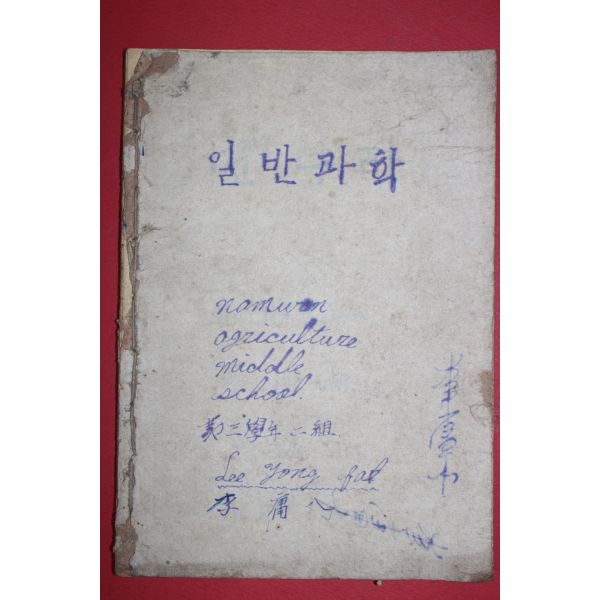 일반과학
namwon
agriculture
middle
school.
第三學年 二組
Lee yong
李